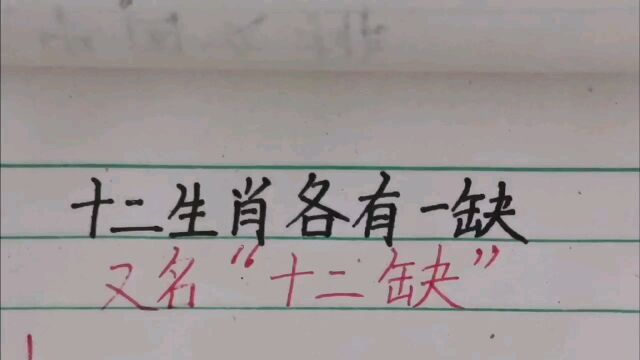 十二生肖各有一缺
又名“十二缺”